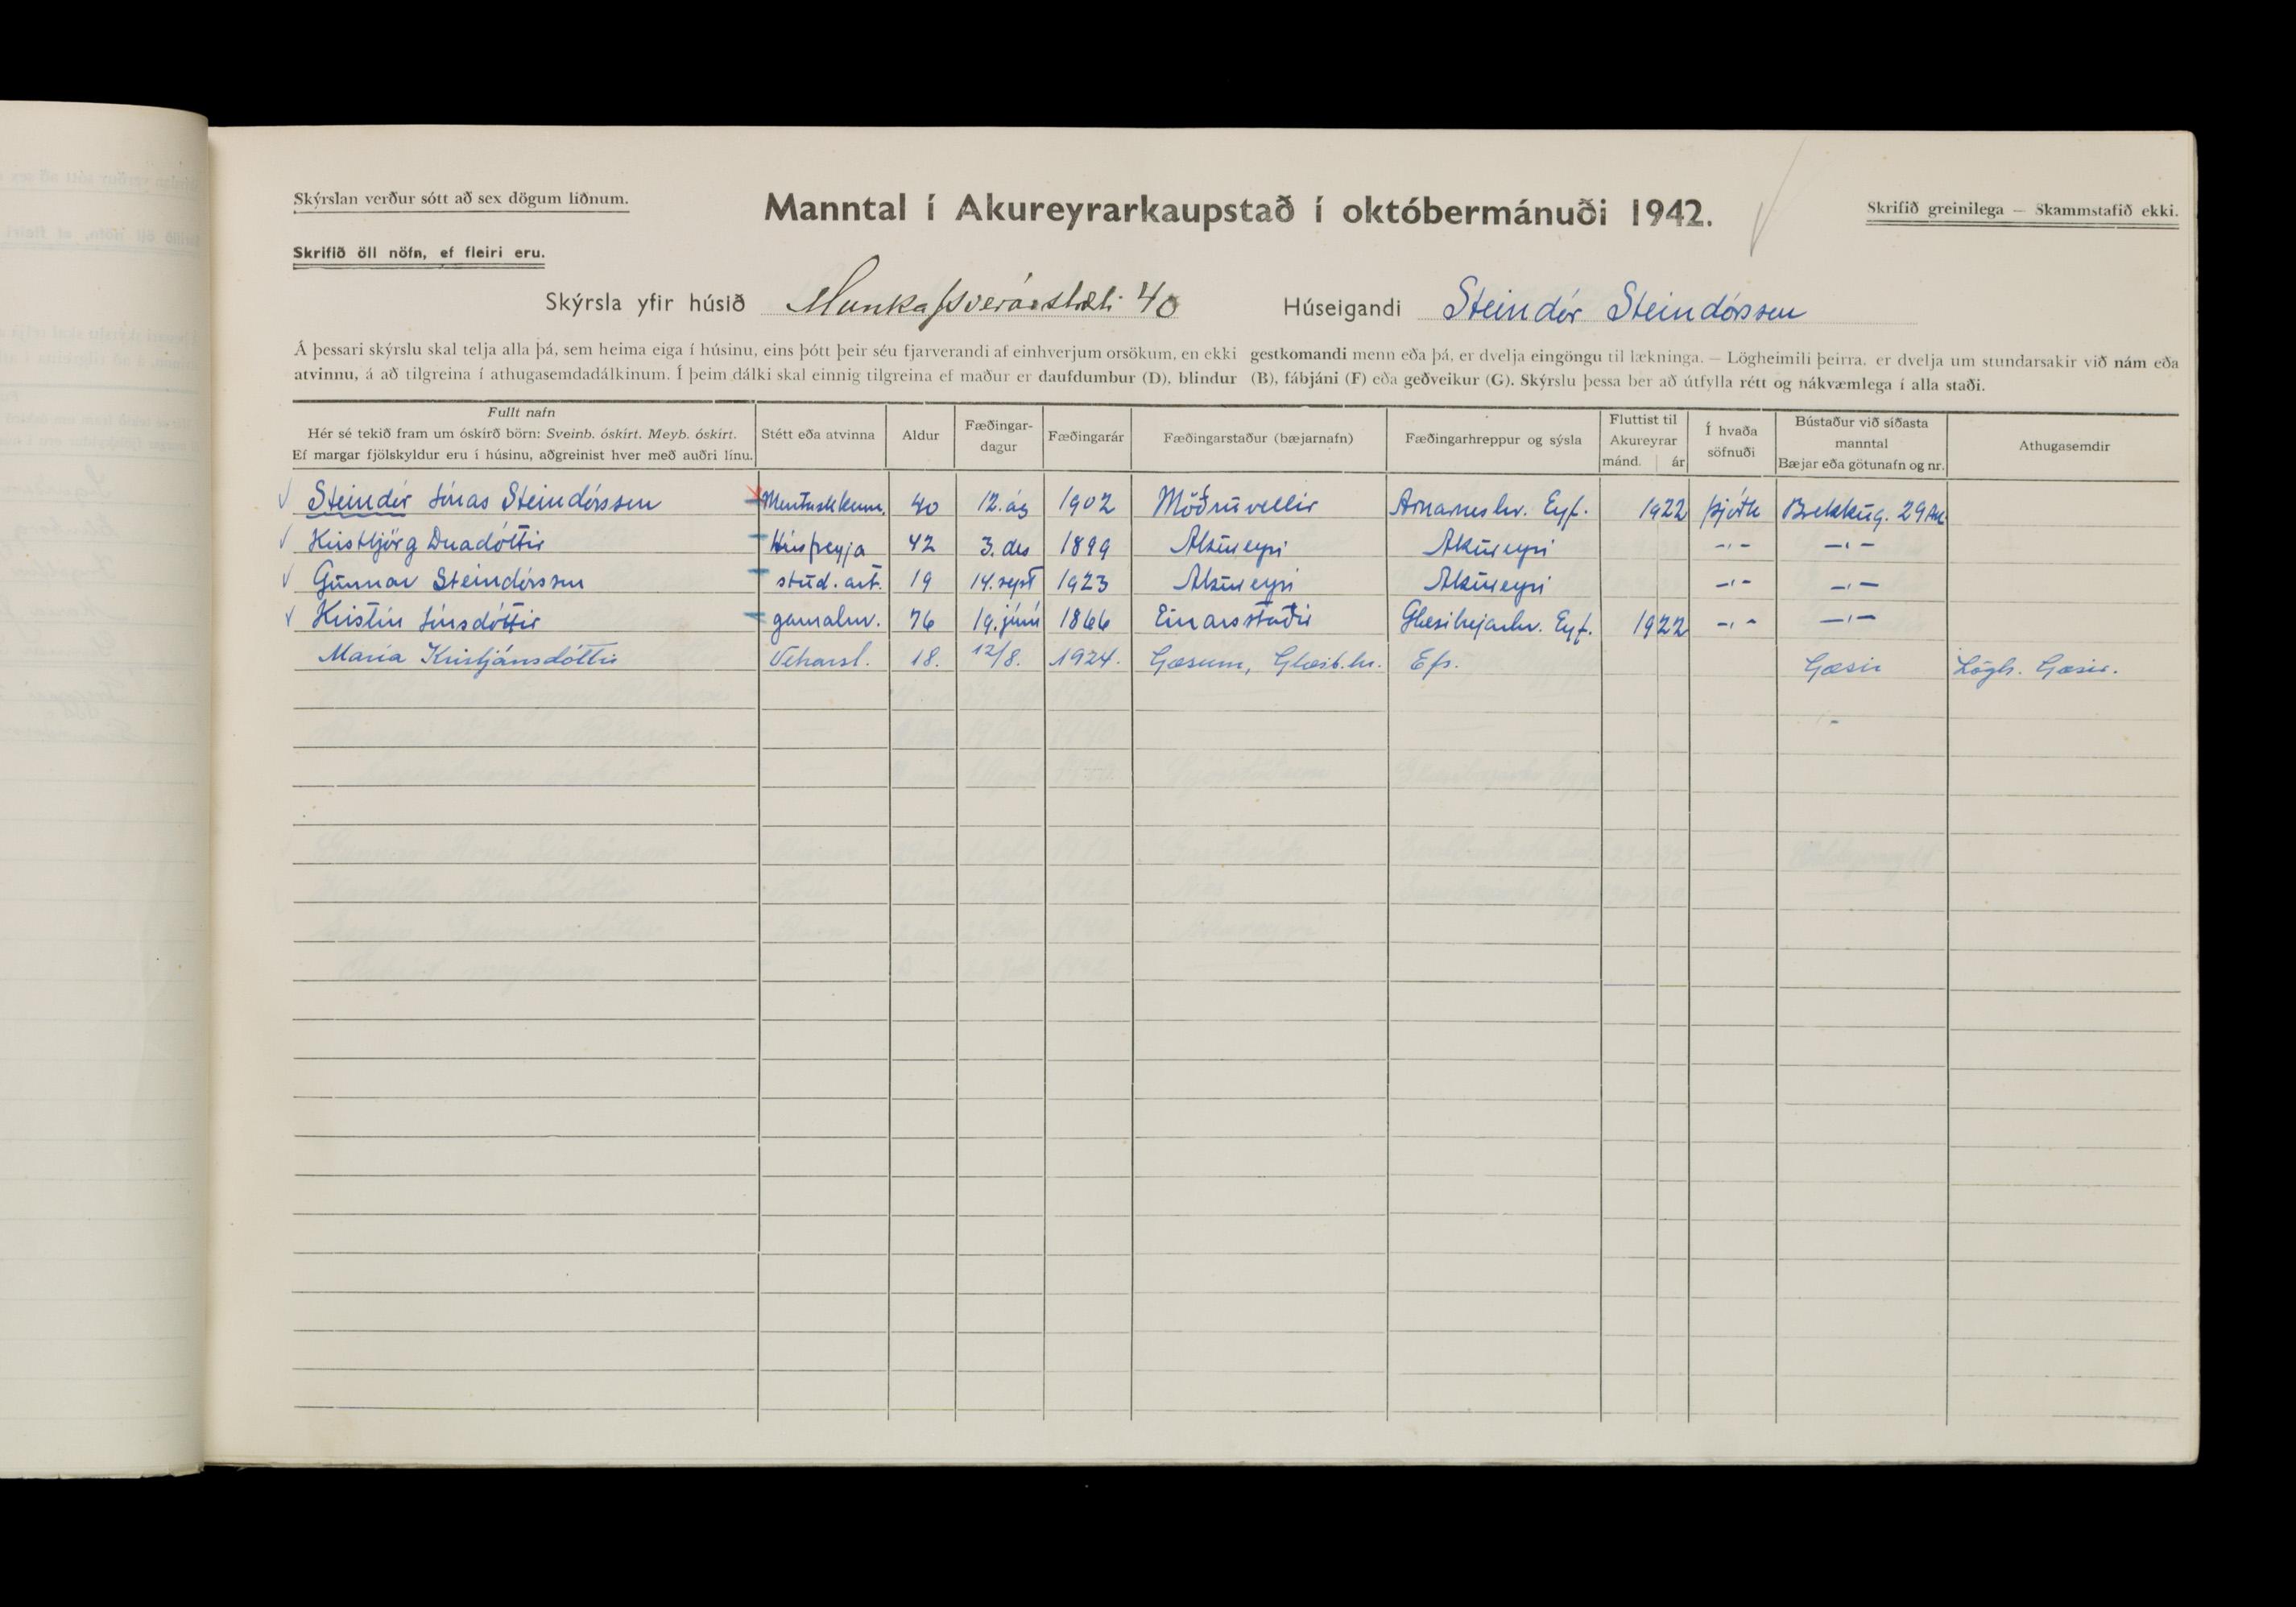 Skýrslan verður sótt að sex dögum liðnum.
Manntal í Akureyrarkaupstað í októbermánuði 1942.
Skrifið greinilega — Skammstafið ekki.
Skrifið öll nöfn, ef fleiri eru.
Skýrsla yfir húsið Munkaþverárstræti 40 Húseigandi Steindór Steindórsson
Á þessari skýrslu skal telja alla þá, sem heima eiga í húsinu, eins þótt þeir séu fjarverandi af einhverjum orsökum, en ekki gestkomandi menn eða þá, er dvelja eingöngu til lækninga. — Lögheimili þeirra, er dvelja um stundarsakir við nám eða
atvinnu, á að tilgreina í athugasemdadálkinum. Í þeim dálki skal einnig tilgreina ef maður er daufdumbur (D), blindur (B), fábjáni (F) eða geðveikur (G). Skýrslu þessa ber að útfylla rétt og nákvæmlega í alla staði.
Fullt nafn
Hér sé tekið fram um óskírð börn: Sveinb. óskírt. Meyb. óskírt.
Ef margar fjölskyldur eru í húsinu, aðgreinist hver með auðri línu.
Stétt eða atvinna
Aldur
Fæðingar-
dagur
Fæðingarár
Fæðingarstaður (bæjarnafn)
Fæðingarhreppur og sýsla
Fluttist til
Akureyrar
mánd. ár
Í hvaða
söfnuði
Bústaður við síðasta
manntal
Bæjar eða götunafn og nr.
Athugasemdir
Steindór Jónas Steindórsson Mentaskkenn. 40 12. ág 1902 Möðruvellir Arnarneshr. Eyf. 1922 Þjóðk Brekkug. 29 Ak
Kristbjörg Dúadóttir Húsfreyja 42 3. des 1899 Akureyri Akureyri —"— —"—
Gunnar Steindórsson stud. art. 19 14. sept 1923 Akureyri Akureyri —"— —"—
Kristín Jónsdóttir gamalm. 76 19. júní 1866 Einarsstaðir Glæsibæjarhr. Eyf. 1922 —"— —"—
María Kristjánsdóttir 18. 12/8. 1924. Gæsum, Glæsib.hr. Ef. Gæsir Lögh. Gæsir.